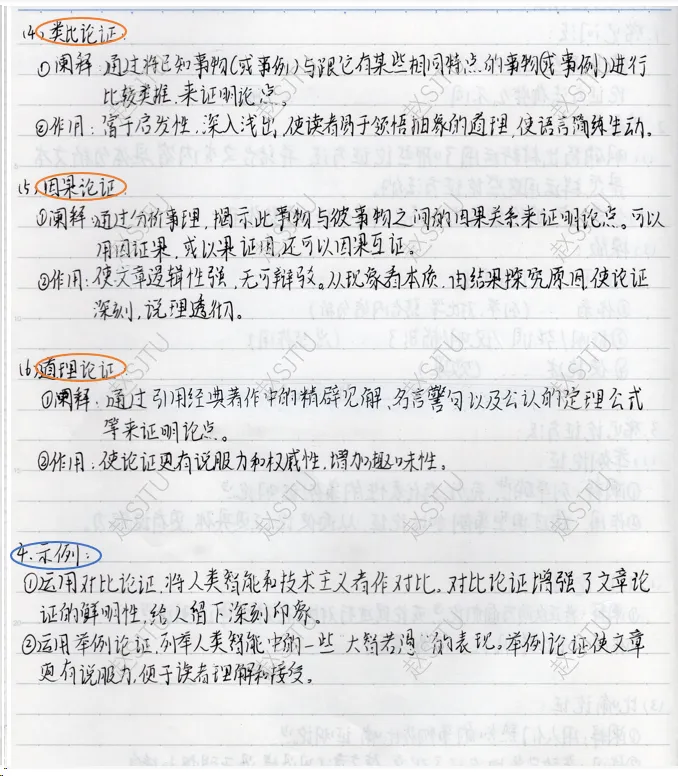 (4)类比论证
①阐释：通过将已知事物(或事例)与跟它有某些相同特点的事物(或事例)进行
比较类推，来证明论点。
②作用：富于启发性，深入浅出，使读者易于领悟抽象的道理，使语言简练生动。
(5)因果论证
①阐释：通过分析事理，揭示此事物与彼事物之间的因果关系来证明论点。可以
用因证果，或以果证因，还可以因果互证。
②作用：使文章逻辑性强，无可辩驳。从现象看本质，由结果探究原因，使论证
深刻，说理透彻。
(6)道理论证
①阐释：通过引用经典著作中的精辟见解、名言警句以及公认的定理公式
等来证明论点。
②作用：使论证更有说服力和权威性，增加趣味性。
4.示例：
①运用对比论证，将人类智能和技术主义者作对比。对比论证增强了文章论
证的鲜明性，给人留下深刻印象。
②运用举例论证，列举人类智能中的一些"大智若愚"的表现。举例论证使文章
更有说服力，便于读者理解和接受。
赵SJTU